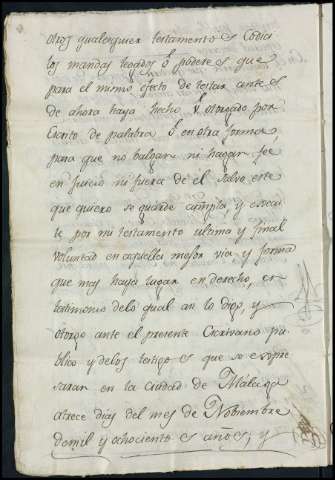 otros qualesquier testamento es Codici
los mandas legados o podere es que
para el mismo efecto de testar antes
de ahora haya hecho y otorgado por
escrito de palabra o en otra forma,
para que no balgan ni hagan fee
en Juicio ni fuera de el salvo este
que quiero se guarde cumpla, y execu
te por mi testamento ultima y final
voluntad en aquella mejor via, y forma
que mas haya lugar en derecho, en
testimonio delo qual asi lo digo, y
otorgo ante el presente Escrivano pu
blico y delos testigo es que se expre
saran en la ciudad de Malaga
atrece dias del mes de Nobiembre
demil y ochociento es años es, y